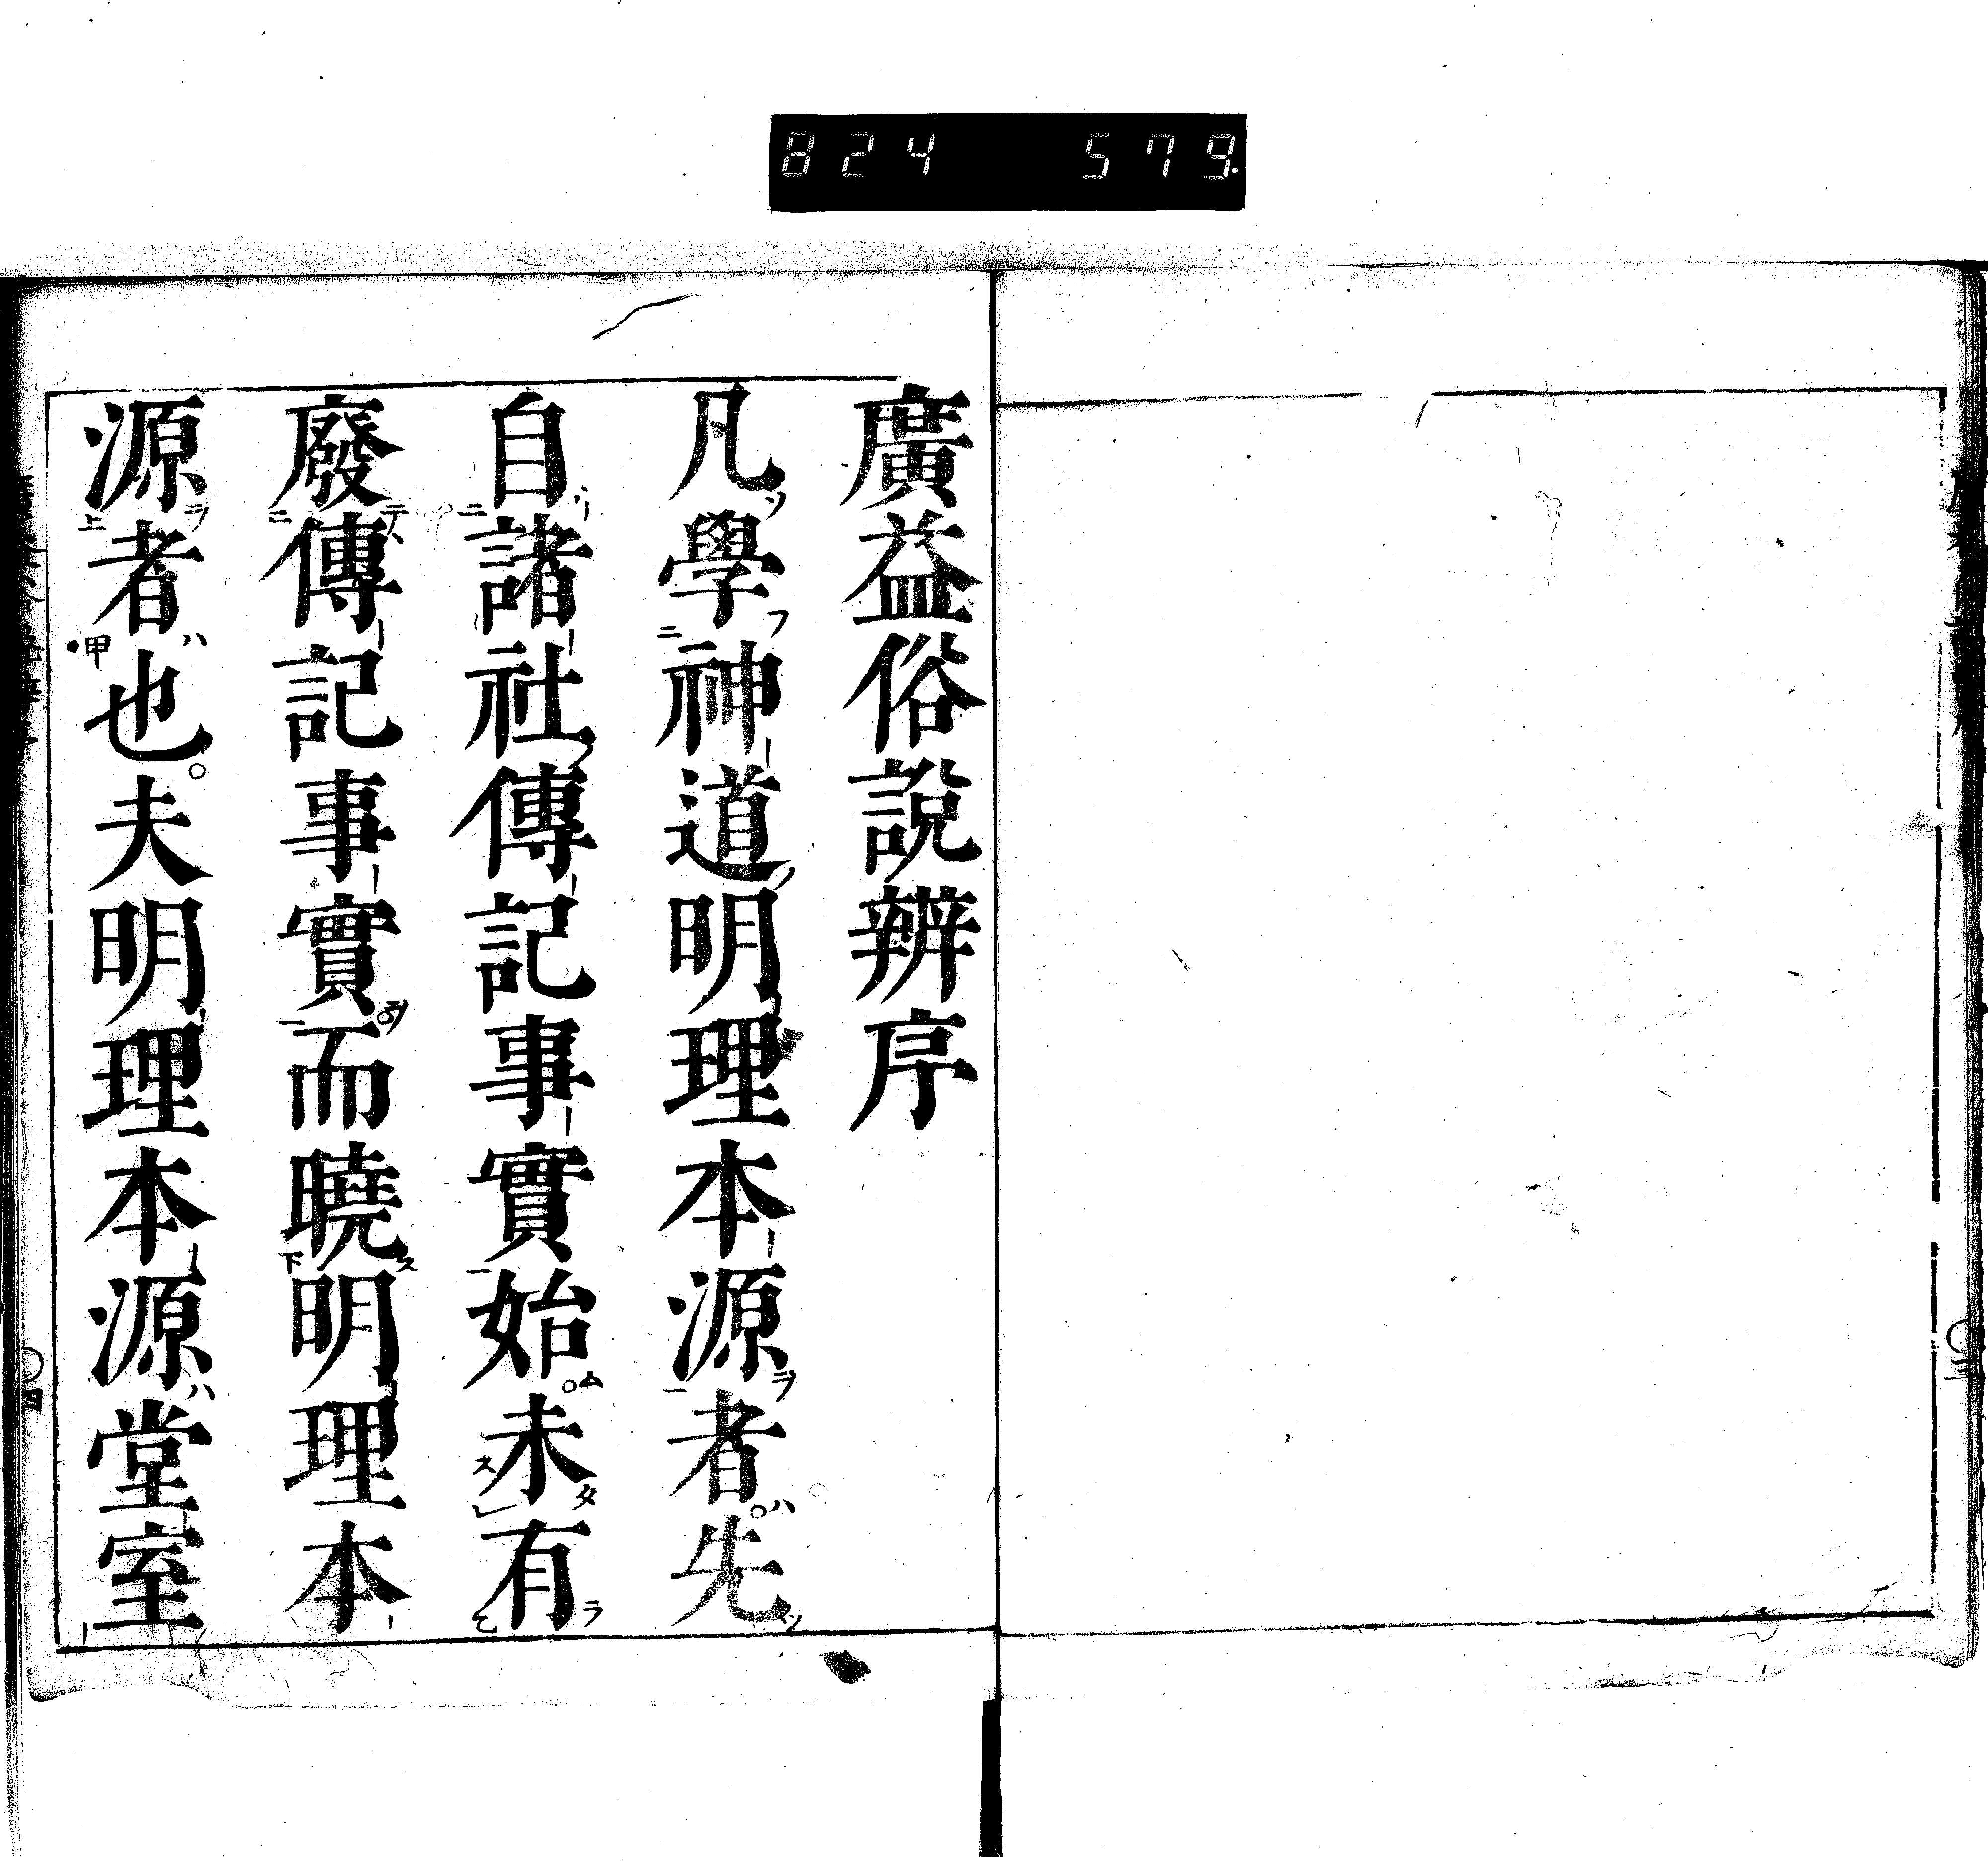 824 579.
廣益俗說辨序
凡學神道明理本源者先
自諸社傳記事實始未有
廢傳記事實而曉明理本
源者也夫明理本源堂室